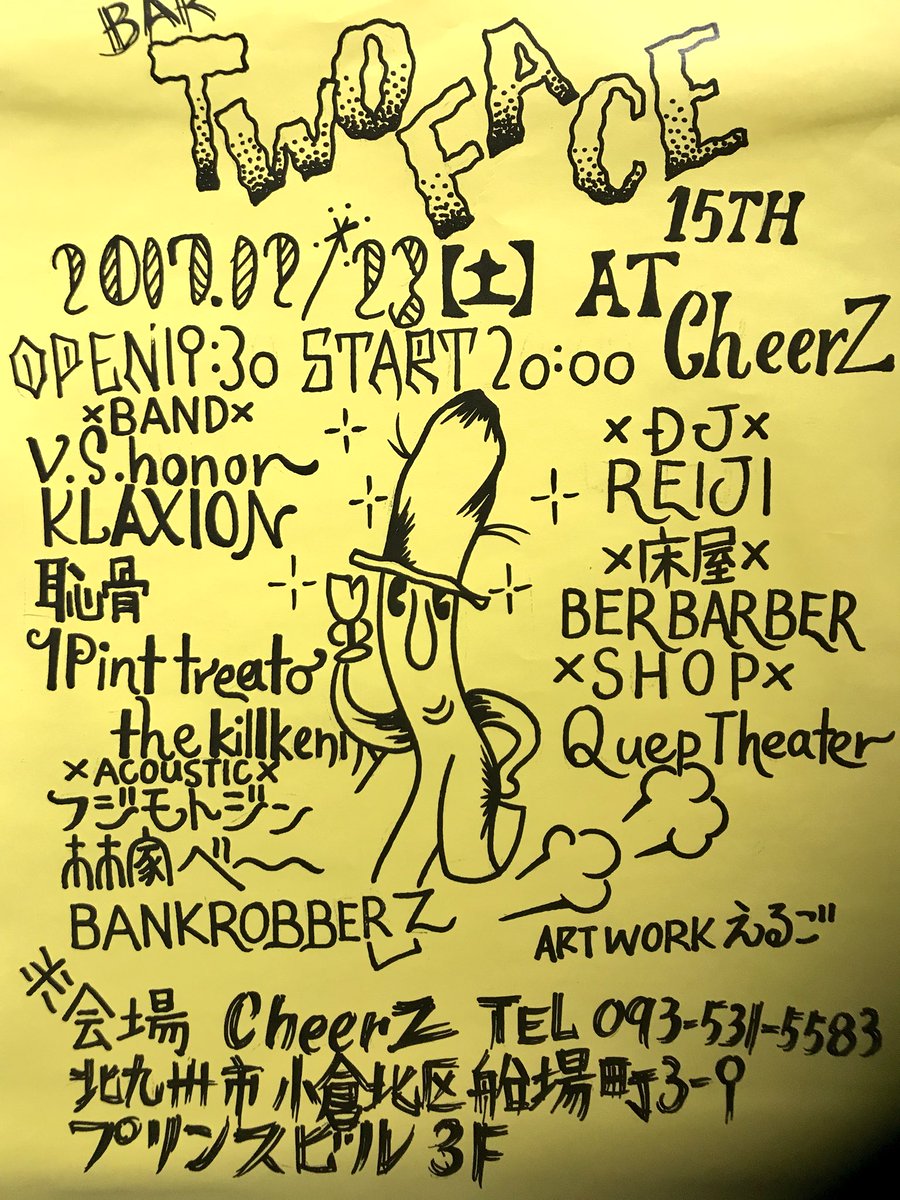 BAR
TWO FACE
15TH
2017.12/23【土】 AT CheerZ
OPEN19:30 START20:00
×BAND×
V.S.honor
KLAXION
恥骨
1Pint treato
the killkenny
×ACOUSTIC×
フジモトジーン
林家べ〜
BANKROBBERZ
×DJ×
REIJI
×床屋×
BERBARBER
×SHOP×
Quep Theater
ARTWORK えるご
※会場 CheerZ TEL 093-531-5583
北九州市小倉北区船場町3-9
プリンスビル3F